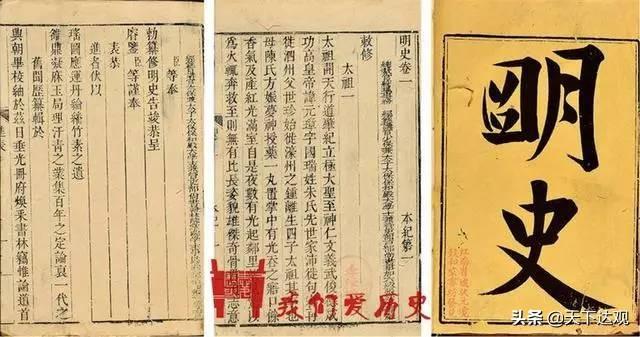 明史
明史卷一 本紀第一
敕修
太祖一
太祖開天行道肇紀立極大聖至神仁文義武俊德成
功高皇帝諱元璋字國瑞姓朱氏先世家沛徙句
徙泗州父世珍始徙濠州之鍾離生四子太祖其
母陳氏方娠夢神授藥一丸置掌中有光吞之寤口餘
香氣及產紅光滿室自是夜數有光起鄰里
為火輒奔救至則無有比長姿貌雄傑奇骨志意
臣等奉
勅纂修明史告竣恭呈
御鑒臣等謹奉
表恭
進者伏以
瑤圖應運丹綸煥竹素之遺
鼎凝庥玉局理汗青之業集百年之定論裒一代之
舊聞歷纂輯於
興朝畢校紬於茲日垂光冊府煥乘書林竊惟論道首
我们爱历史
头条 @天下达观